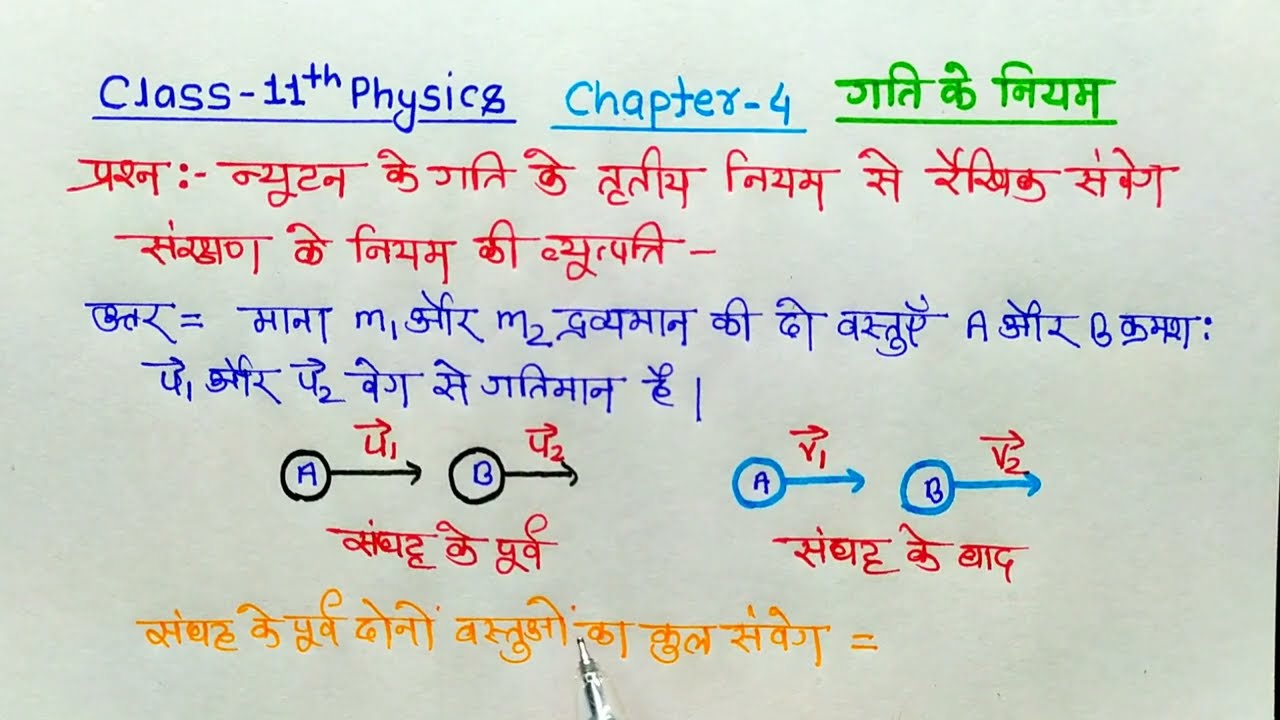 Class-11th Physics Chapter-4 गति के नियम
प्रश्न :- न्यूटन के गति के तृतीय नियम से रैखिक संवेग
संरक्षण के नियम की व्यूत्पत्ति -
उत्तर = माना m₁ और m₂ द्रव्यमान की दो वस्तुएँ A और B क्रमश:
u⃗₁ और u⃗₂ वेग से गतिमान है।
A u⃗₁ B u⃗₂ A v⃗₁ B v⃗₂
संघट्ट के पूर्व संघट्ट के बाद
संघट्ट के पूर्व दोनों वस्तुओं का कुल संवेग =